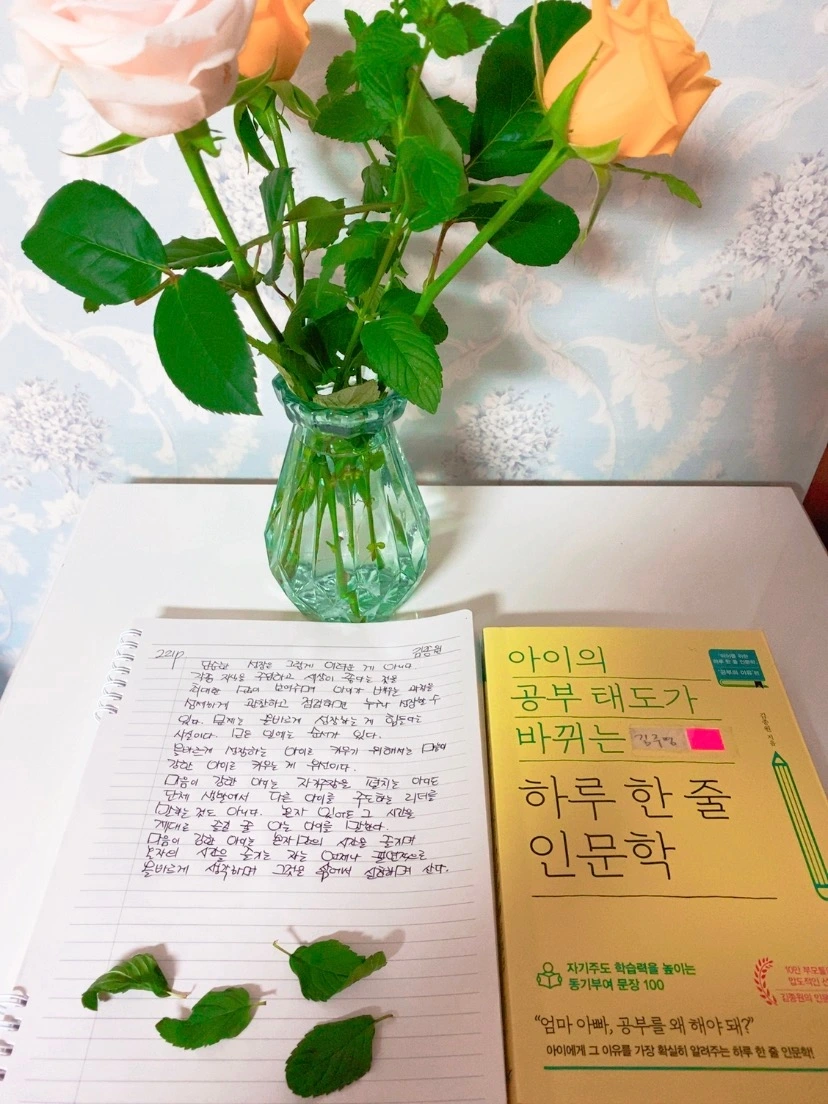 221p 김종원
단순한 성장은 그렇게 어려운 게 아니다.
각종 지식을 주입하고 세상이 좋다는 것을
최대한 많이 보여주며 아이가 바뀌는 과정을
섬세하게 관찰하고 점검하면 누구나 성장할 수
있다. 문제는 올바르게 성장하는 게 힘들다는
사실이다. 모든 일에는 순서가 있다.
올바르게 성장하는 아이로 키우기 위해서는 마음이
강한 아이로 키우는 게 우선이다.
마음이 강한 아이는 자기주장을 펼치는 아이도
단체 생활에서 다른 아이를 주도하는 리더를
말하는 것도 아니다. 혼자 있어도 그 시간을
제대로 즐길 줄 아는 아이를 말한다.
마음이 강한 아이는 혼자만의 시간을 즐기며
혼자의 시간을 즐기는 자는 언제나 필연적으로
올바르게 생각하며 그것을 삶에서 실천하며 산다.
아이의
공부 태도가
바뀌는
하루 한 줄
인문학
공부의 이유
김종원 지음
자기주도 학습력을 높이는
동기부여 문장 100
10만 부모들의
압도적인
김종원의
“엄마 아빠, 공부를 왜 해야 돼?”
아이에게 그 이유를 가장 확실히 알려주는 하루 한 줄 인문학!